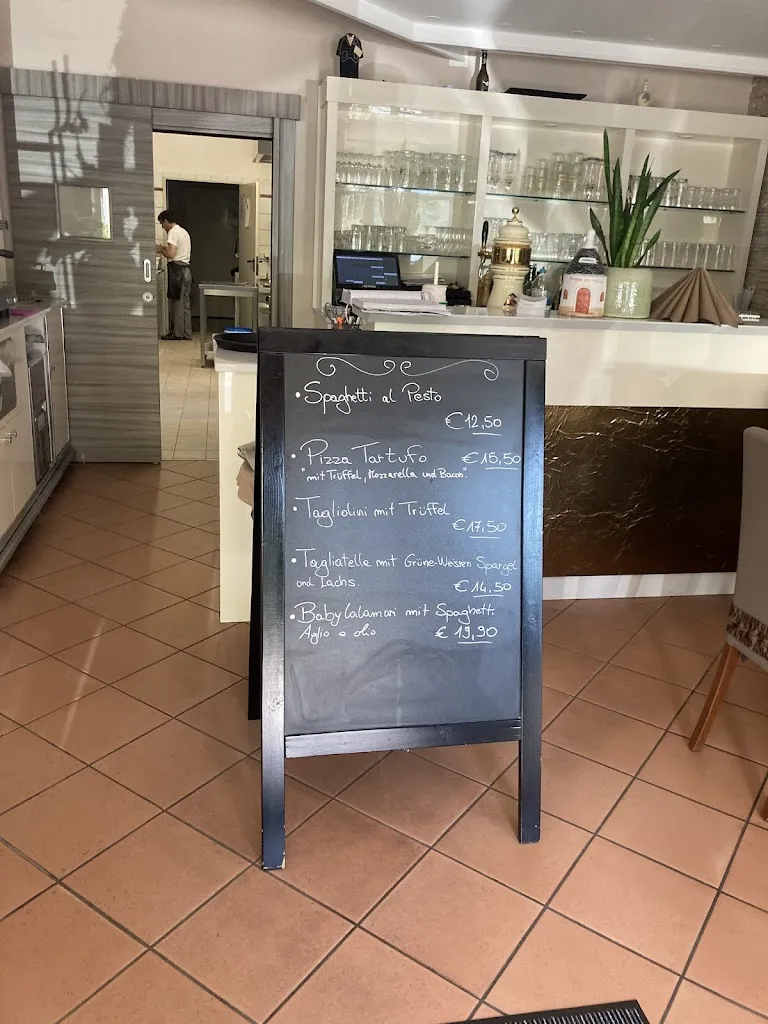 • Spaghetti al Pesto
€ 12,50
• Pizza Tartufo € 15,50
"mit Trüffel, Mozzarella und Bacon".
• Tagliolini mit Trüffel
€ 17,50
• Tagliatelle mit Grüne-Weissen Spargel
und Lachs. € 14,50
• Baby Calamari mit Spaghetti
Aglio e olio € 19,90